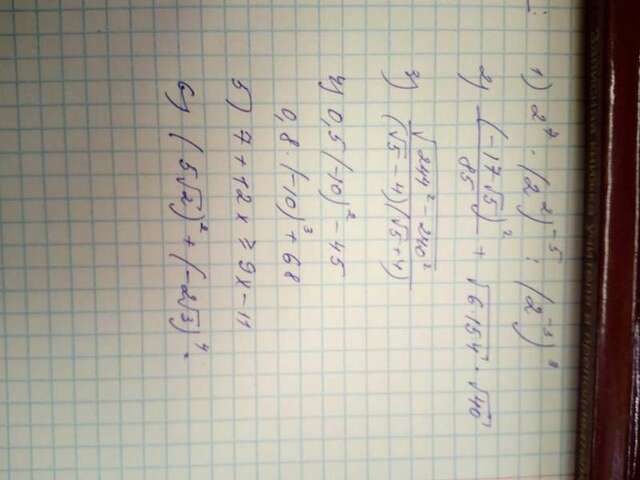 1) 2⁷ · (2²)⁻⁵ : (2⁻³)⁸
2) (-17√5)² / 85 + √6·154 · √40
3) √244² - 240² / (√5 - 4)(√5 + 4)
4) 0,5(-10)² - 45
0,8·(-10)³ + 68
5) 7 + 12x ≥ 9x - 11
6) (5√2)² + (-2√3)⁴